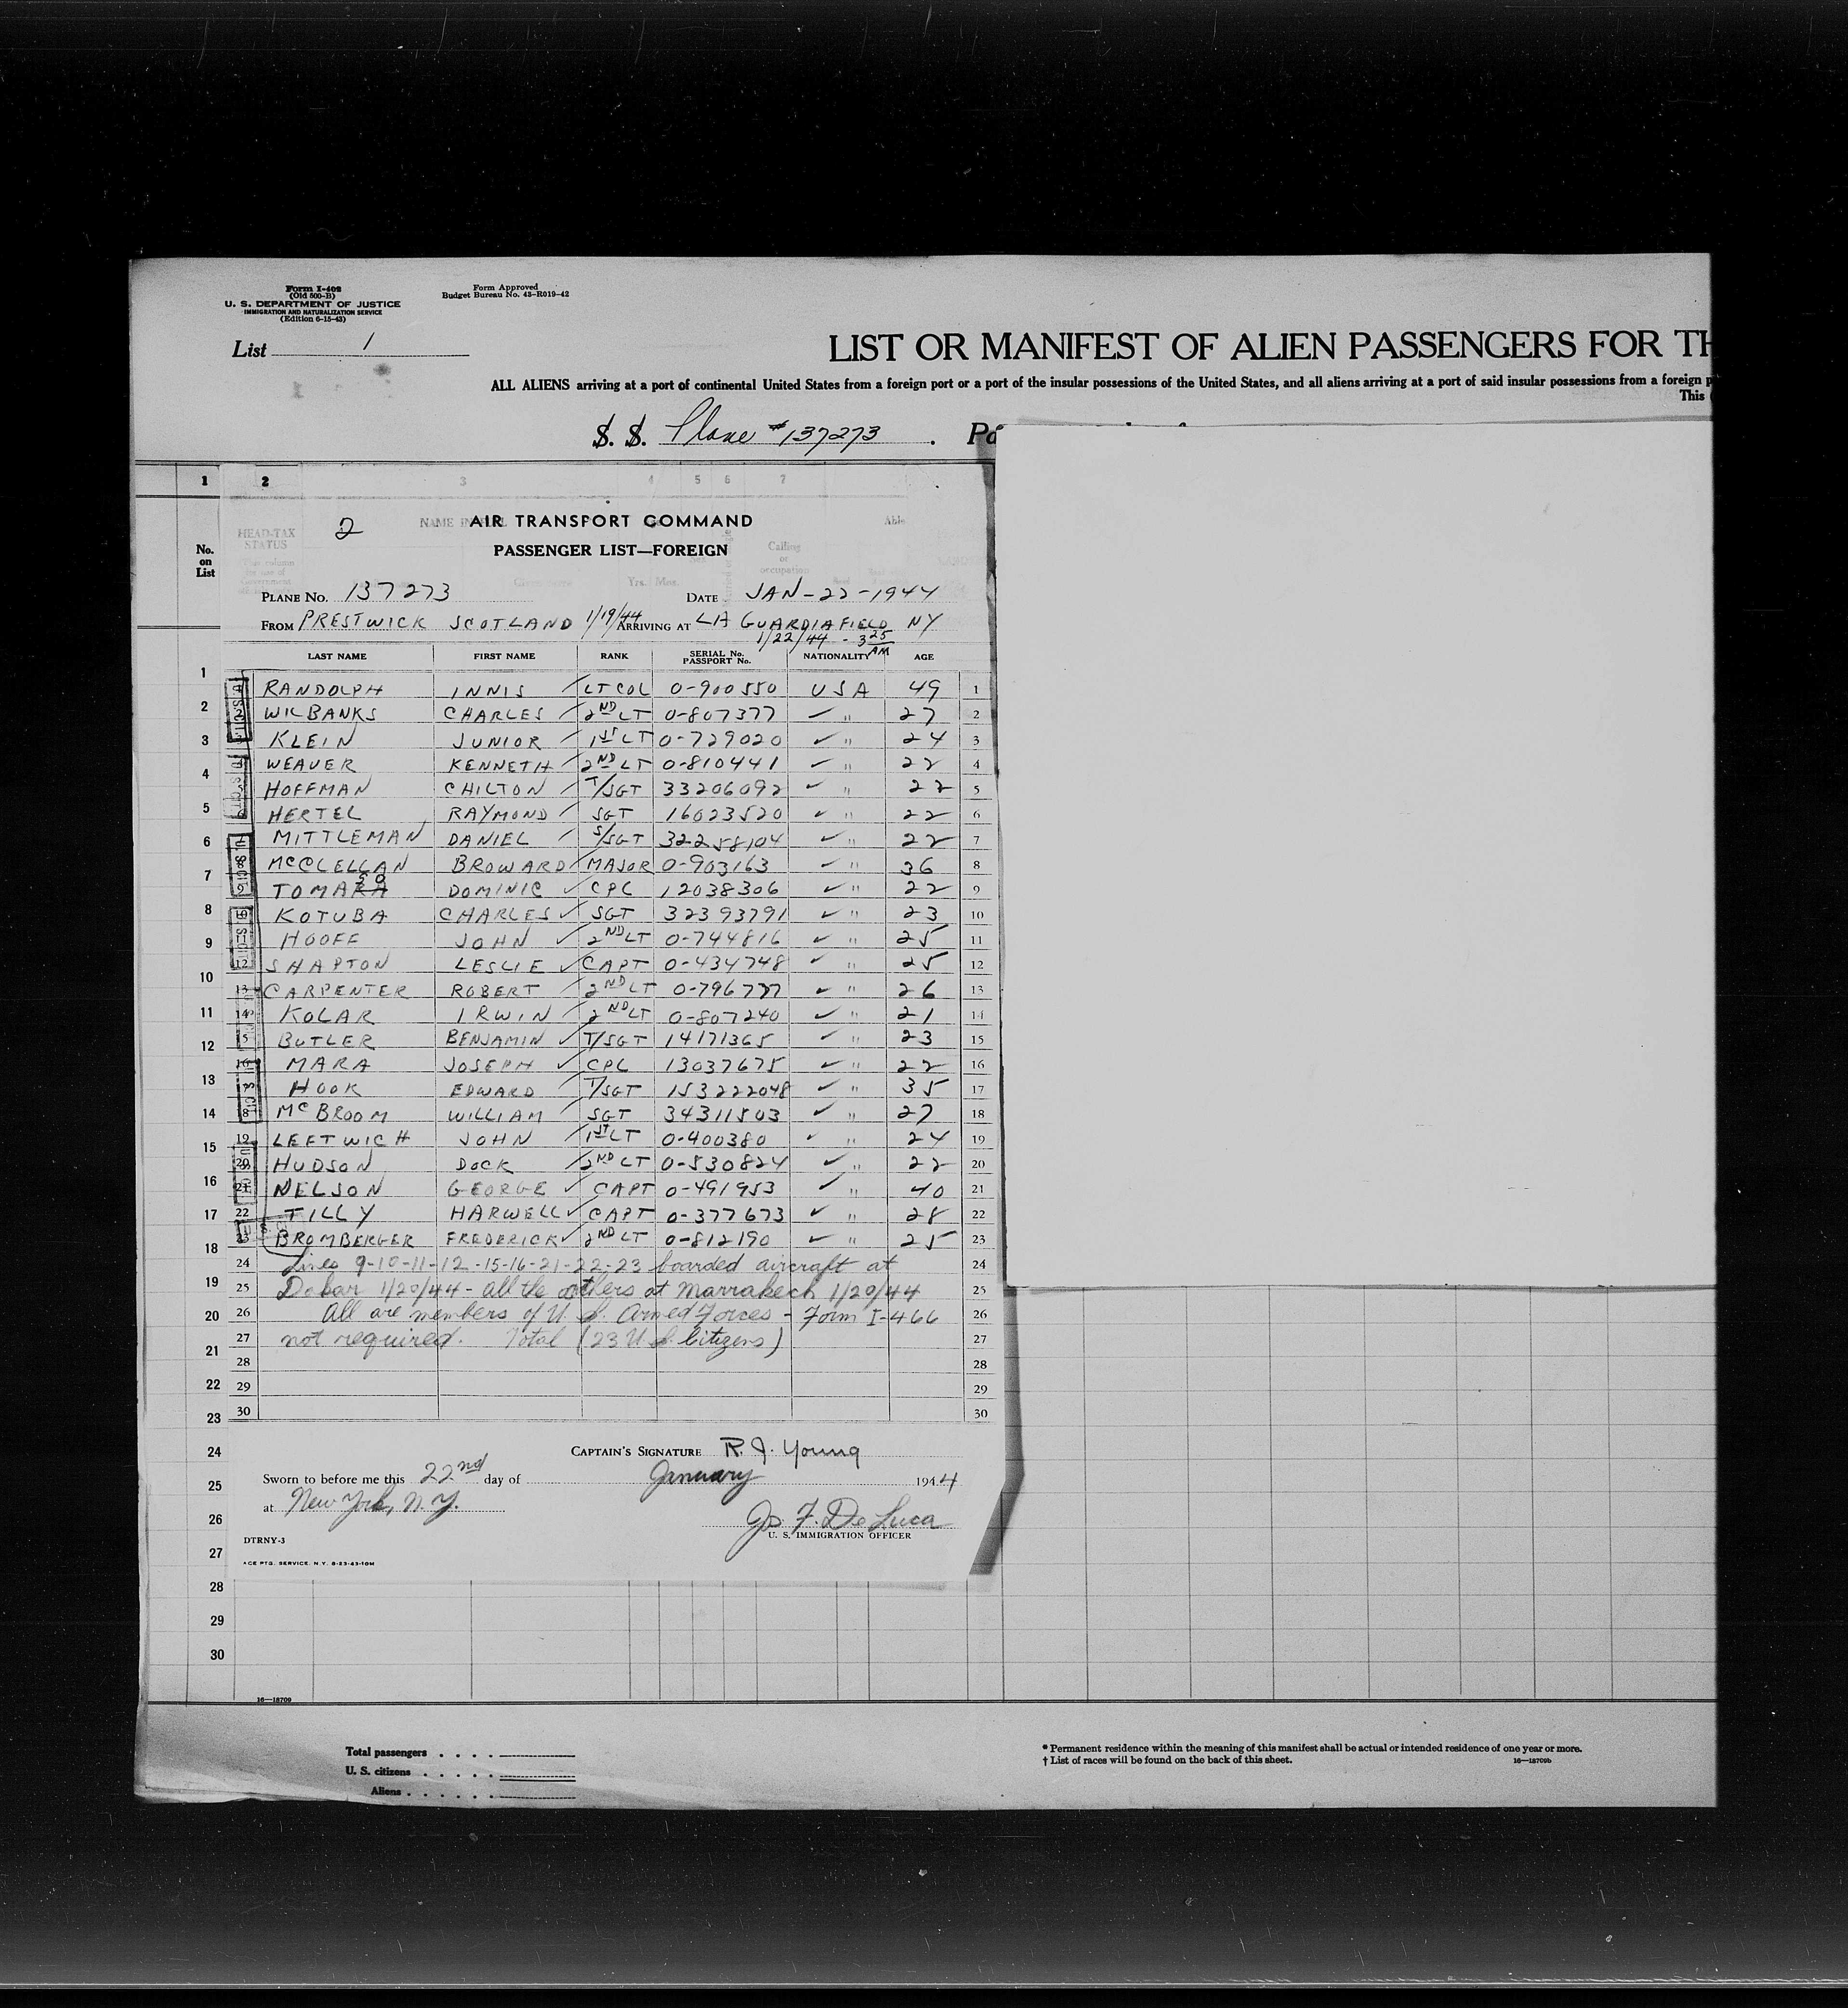 Form I-402
(Old 500-B)
U. S. DEPARTMENT OF JUSTICE
IMMIGRATION AND NATURALIZATION SERVICE
(Edition 6-15-43)
Form Approved
Budget Bureau No. 43-R019-42
List 1
LIST OR MANIFEST OF ALIEN PASSENGERS FOR TH
ALL ALIENS arriving at a port of continental United States from a foreign port or a port of the insular possessions of the United States, and all aliens arriving at a port of said insular possessions from a foreign p
This
S. S. Plane #137273 .
1 2 3 4 5 6 7
No. on List
HEAD-TAX STATUS
Calling or occupation
2
AIR TRANSPORT COMMAND
PASSENGER LIST—FOREIGN
PLANE NO. 137273 DATE JAN-22-1944
FROM PRESTWICK SCOTLAND 1/19/44 ARRIVING AT LA GUARDIA FIELD NY
1/22/44 - 3 25 AM
LAST NAME FIRST NAME RANK SERIAL No. PASSPORT No. NATIONALITY AGE
1 RANDOLPH INNIS LT COL 0-900550 USA 49 1
2 WILBANKS CHARLES 2ND LT 0-807377 " 27 2
3 KLEIN JUNIOR 1ST LT 0-729020 " 24 3
4 WEAVER KENNETH 2ND LT 0-810441 " 22 4
5 HOFFMAN CHILTON T/SGT 33206092 " 22 5
6 HERTEL RAYMOND SGT 16023520 " 22 6
7 MITTLEMAN DANIEL S/SGT 32258104 " 22 7
8 McCLELLAN BROWARD MAJOR 0-903163 " 36 8
9 TOMARA SO DOMINIC CPL 12038306 " 22 9
10 KOTUBA CHARLES SGT 32393791 " 23 10
11 HOOFF JOHN 2ND LT 0-744816 " 25 11
12 SHAPTON LESLIE CAPT 0-434748 " 25 12
13 CARPENTER ROBERT 2ND LT 0-796777 " 26 13
14 KOLAR IRWIN 2ND LT 0-807240 " 21 14
15 BUTLER BENJAMIN T/SGT 14171365 " 23 15
16 MARA JOSEPH CPL 13037675 " 22 16
17 HOOK EDWARD T/SGT 153222048 " 35 17
18 McBROOM WILLIAM SGT 34311503 " 27 18
19 LEFTWICH JOHN 1ST LT 0-400380 " 24 19
20 HUDSON DOCK 2ND LT 0-530824 " 22 20
21 NELSON GEORGE CAPT 0-491953 " 40 21
22 TILLY HARWELL CAPT 0-377673 " 28 22
23 BROMBERGER FREDERICK 2ND LT 0-812190 " 25 23
24 Lines 9-10-11-12-15-16-21-22-23 boarded aircraft at 24
25 Dakar 1/20/44 - all the others at Marrakech 1/20/44 25
26 All are members of U. S. Armed Forces - Form I-466 26
27 not required. Total (23 U S. Citizens) 27
28 28
29 29
30 30
CAPTAIN'S SIGNATURE R. J. Young
Sworn to before me this 22nd day of January 1944
at New York, N.Y.
Js. F. De Luca
U. S. IMMIGRATION OFFICER
DTRNY-3
ACE PTG. SERVICE. N.Y. 8-23-43-10M
1
2
3
4
5
6
7
8
9
10
11
12
13
14
15
16
17
18
19
20
21
22
23
24
25
26
27
28
29
30
16—18709
Total passengers . . . .
U. S. citizens . . . . .
Aliens . . . . . .
* Permanent residence within the meaning of this manifest shall be actual or intended residence of one year or more.
† List of races will be found on the back of this sheet. 16—18709b